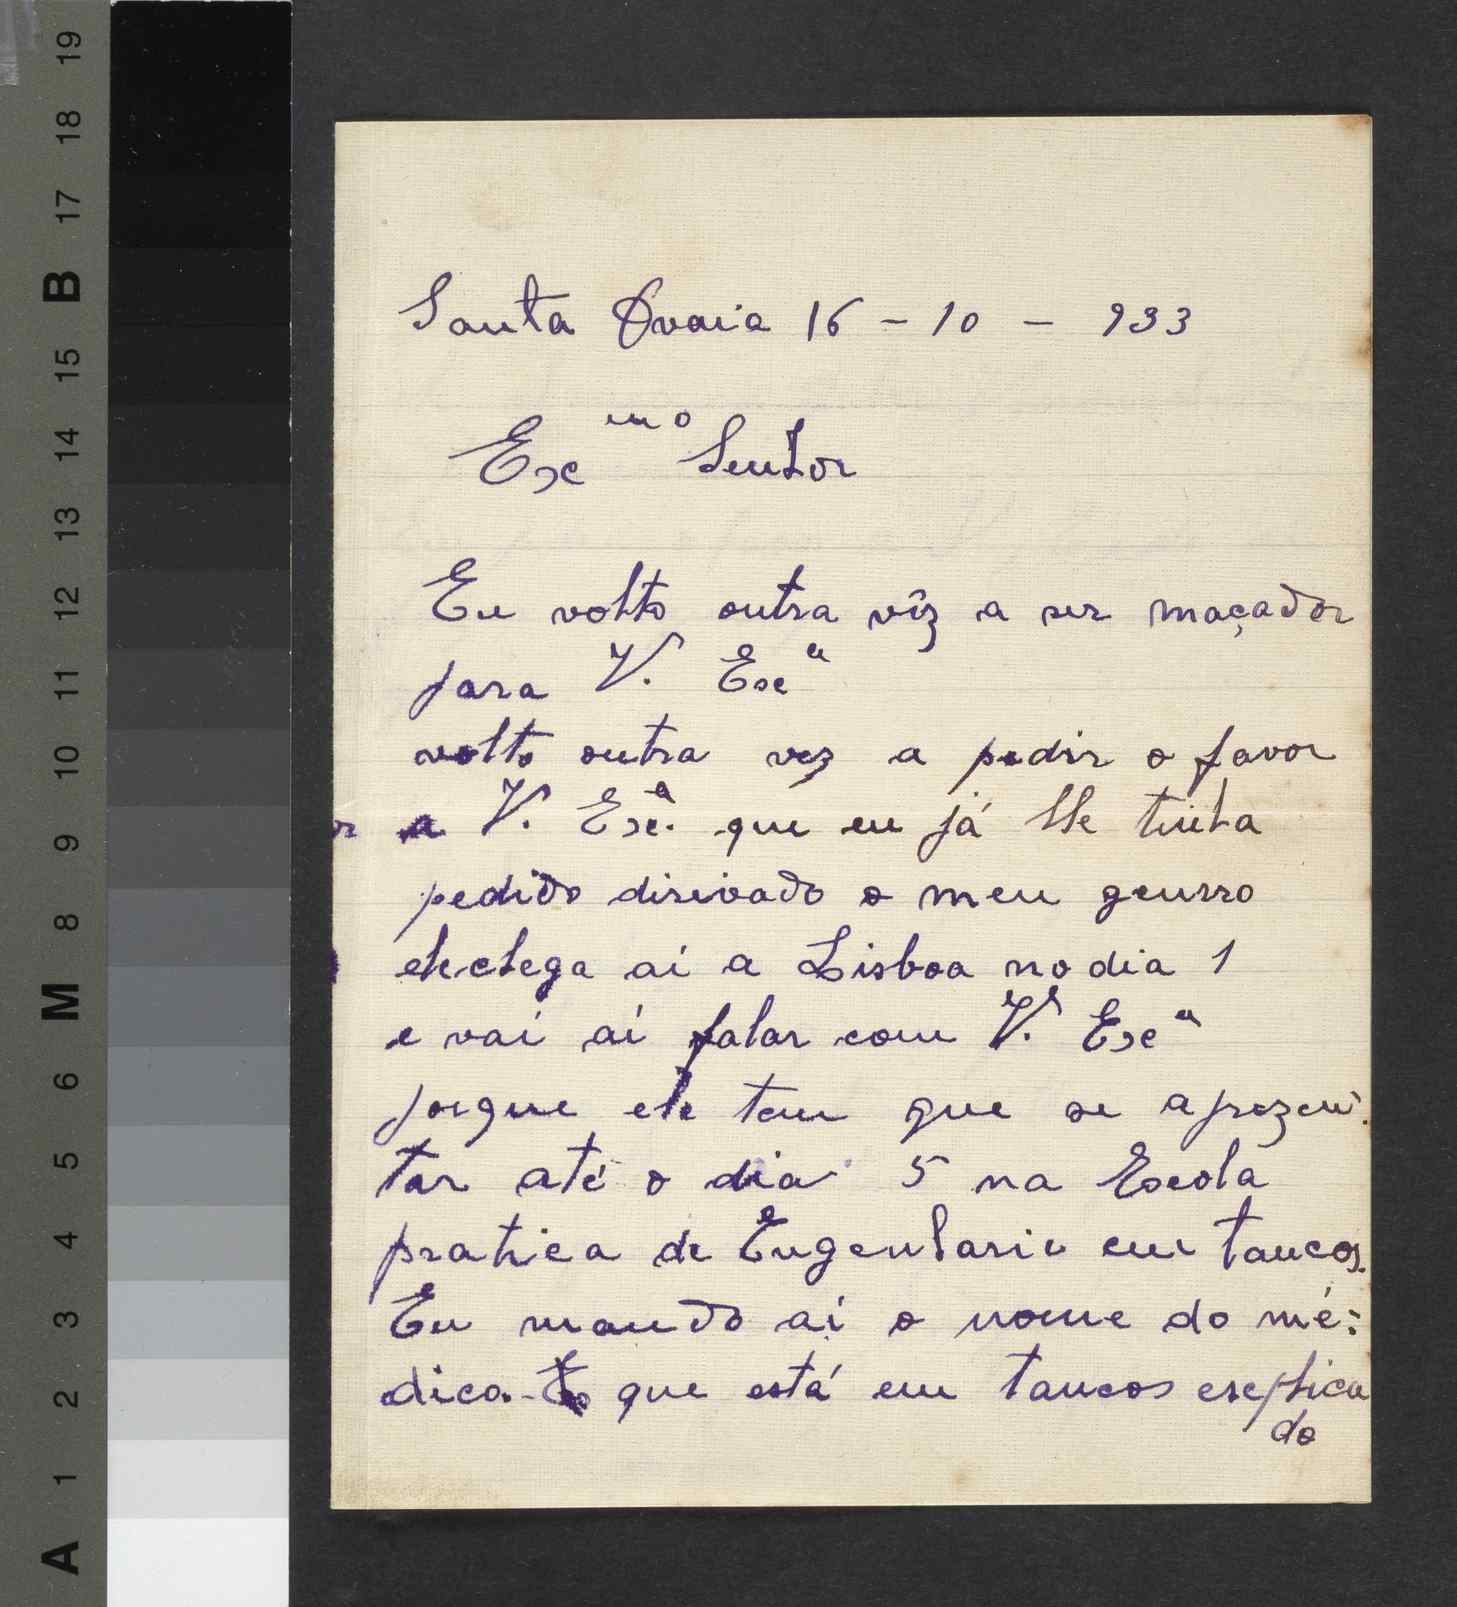 Santa Ovaia 16 - 10 - 933
Exᵐᵒ Senhor
Eu volto outra vêz a ser maçador
para V. Excª
volto outra vez a pedir o favor
a V. Excª. que eu já lhe tinha
pedido o meu genrro
ele chega aí a Lisboa no dia 1
e vai aí falar com V. Excª
porque ele tem que se aprezen-
tar até o dia 5 na Escola
pratica de Engenharia em tancos.
Eu mando aí o nome do mé-
dico que está em tancos explica
do